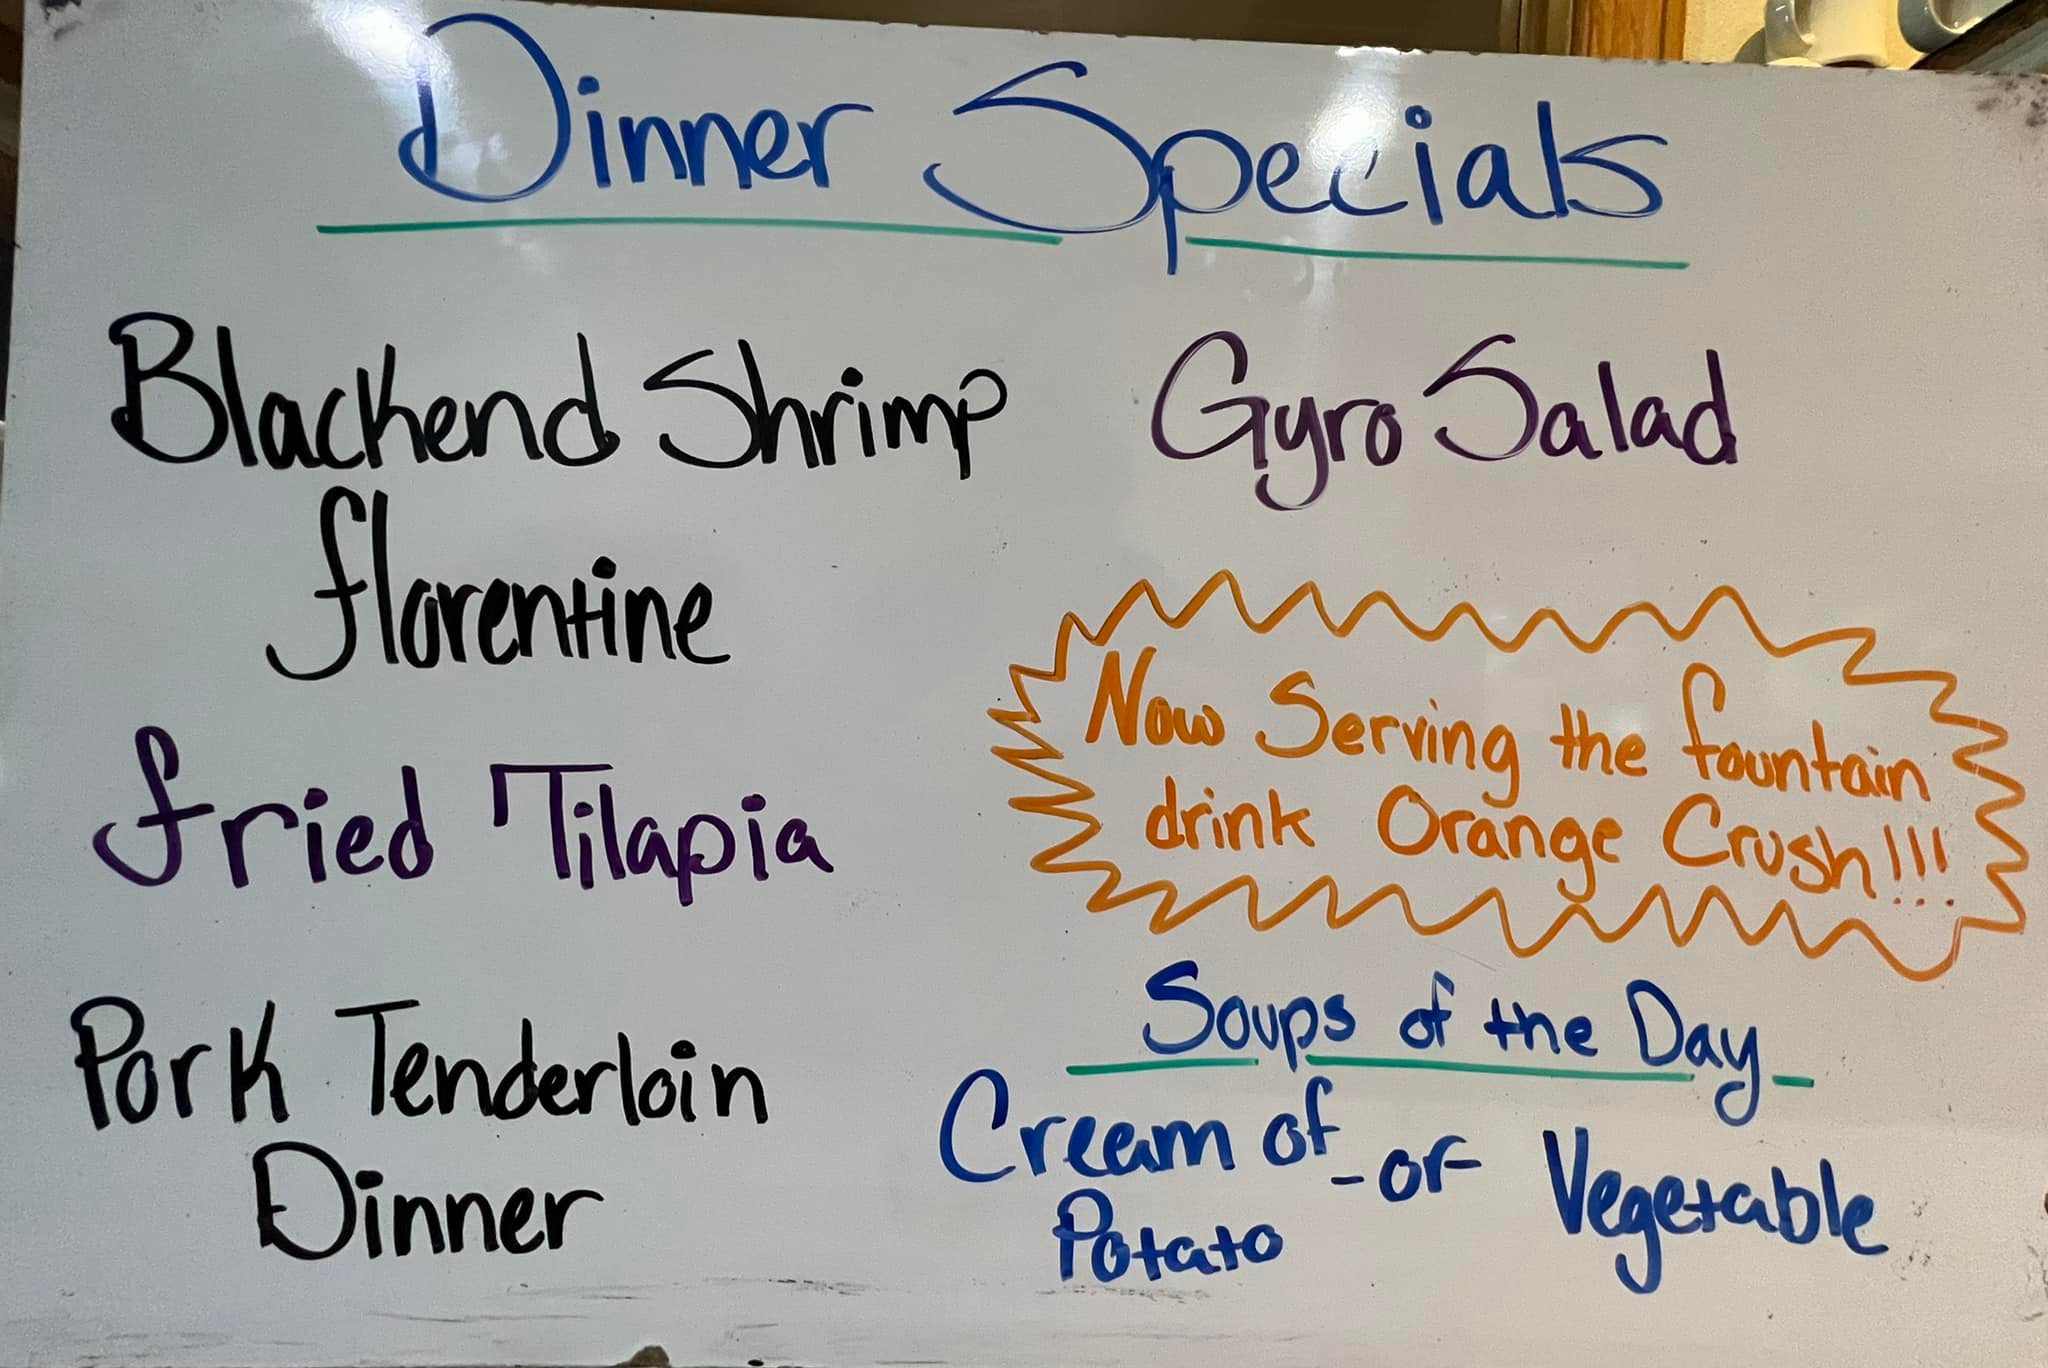 Dinner Specials
Blackend Shrimp
florentine
fried Tilapia
Pork Tenderloin
Dinner
Gyro Salad
Now Serving the fountain
drink Orange Crush!!!
Soups of the Day
Cream of -or- Vegetable
Potato